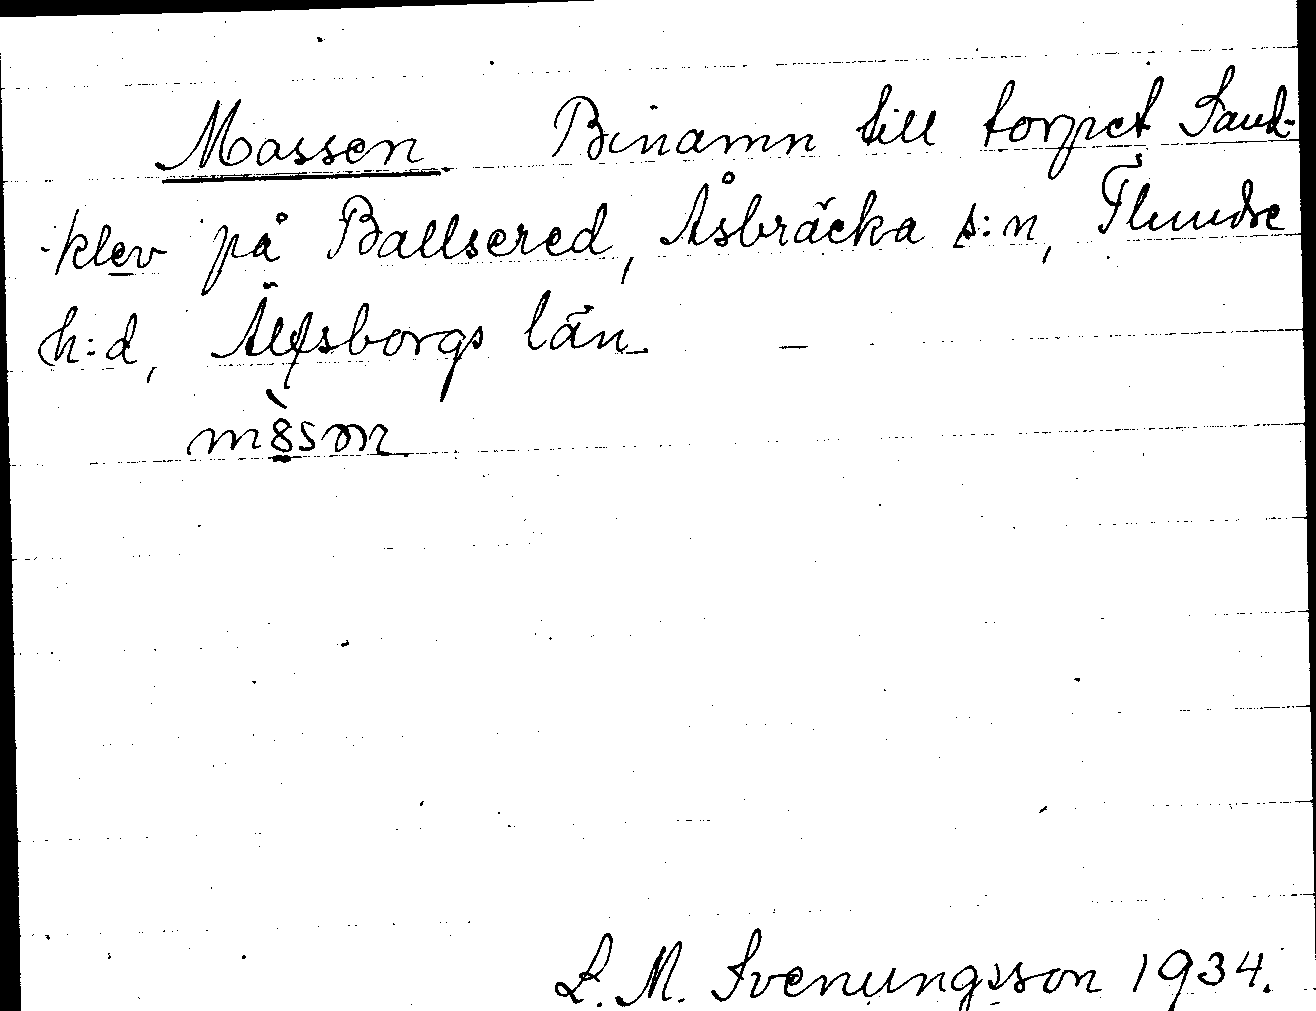 Massen. Binamn till torpet Sand-
-klev på Ballsered, Åsbräcka s:n, Flundre
h:d, Älfsborgs län. –
L. M. Svenungsson 1934.